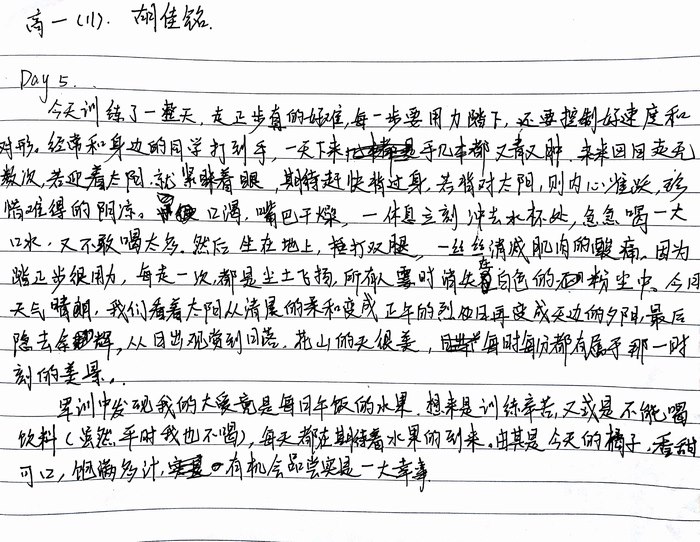 高一(11). 胡佳铭.
Day 5.
今天训练了一整天,走正步真的好难,每一步要用力踏下,还要控制好速度和
对形。经常和身边的同学打到手,一天下来手几本都又青又肿.来来回回走无
数次,若迎着太阳.就紧眯着眼,期待赶快转过身,若背对太阳,则内心雀跃,珍
惜难得的阴凉。口渴,嘴巴干燥,一休息立刻冲去水杯处,急急喝一大
口水,又不敢喝太多.然后坐在地上,捶打双腿,一丝丝消减肌肉的酸痛.因为
踏正步很用力,每走一次,都是尘土飞扬,所有人霎时消失在白色的粉尘中.今日
天气晴朗,我们看着太阳从清晨的柔和变成正午的烈日再变成天边的夕阳,最后
隐去余辉,从日出观赏到日落.花山的天很美,每时每分都有属于那一时
刻的美景.
军训中发现我的大爱竟是每日午饭的水果.想来是训练辛苦,又或是不能喝
饮料(虽然平时我也不喝),每天都在期待着水果的到来.由其是今天的橘子,香甜
可口,饱满多汁,有机会品尝实是一大幸事